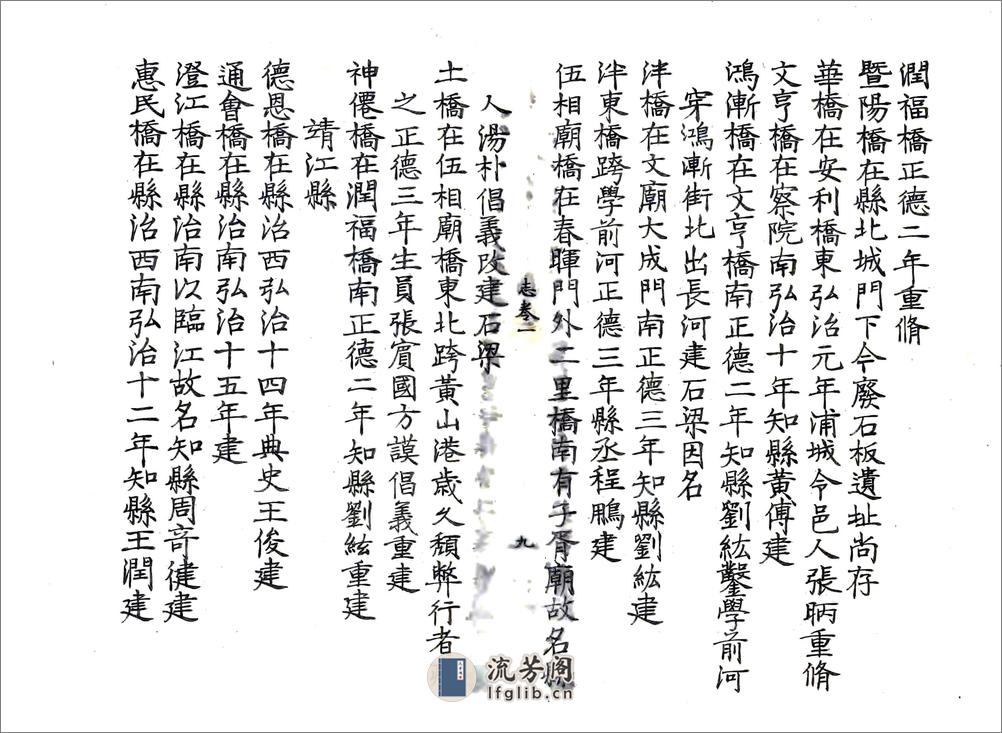 潤福橋正德二年重脩
暨陽橋在縣北城門下今廢石板遺址尚存
華橋在安利橋東弘治元年浦城令邑人張昞重脩
文亨橋在察院南弘治十年知縣黃傅建
鴻漸橋在文亨橋南正德二年知縣劉紘鑿學前河
穿鴻漸街北出長河建石梁因名
泮橋在文廟大成門南正德三年知縣劉紘建
泮東橋跨學前河正德三年縣丞程鵬建
伍相廟橋在春暉門外二里橋南有子胥廟故名縣
人湯朴倡義改建石梁
志卷一
九
土橋在伍相廟橋東北跨黃山港歲久頹弊行者
之正德三年生員張賓國方謨倡義重建
神僊橋在潤福橋南正德二年知縣劉紘重建
靖江縣
德恩橋在縣治西弘治十四年典史王俊建
通會橋在縣治南弘治十五年建
澄江橋在縣治南以臨江故名知縣周奇健建
惠民橋在縣治西南弘治十二年知縣王潤建
流芳阁
lfglib.cn